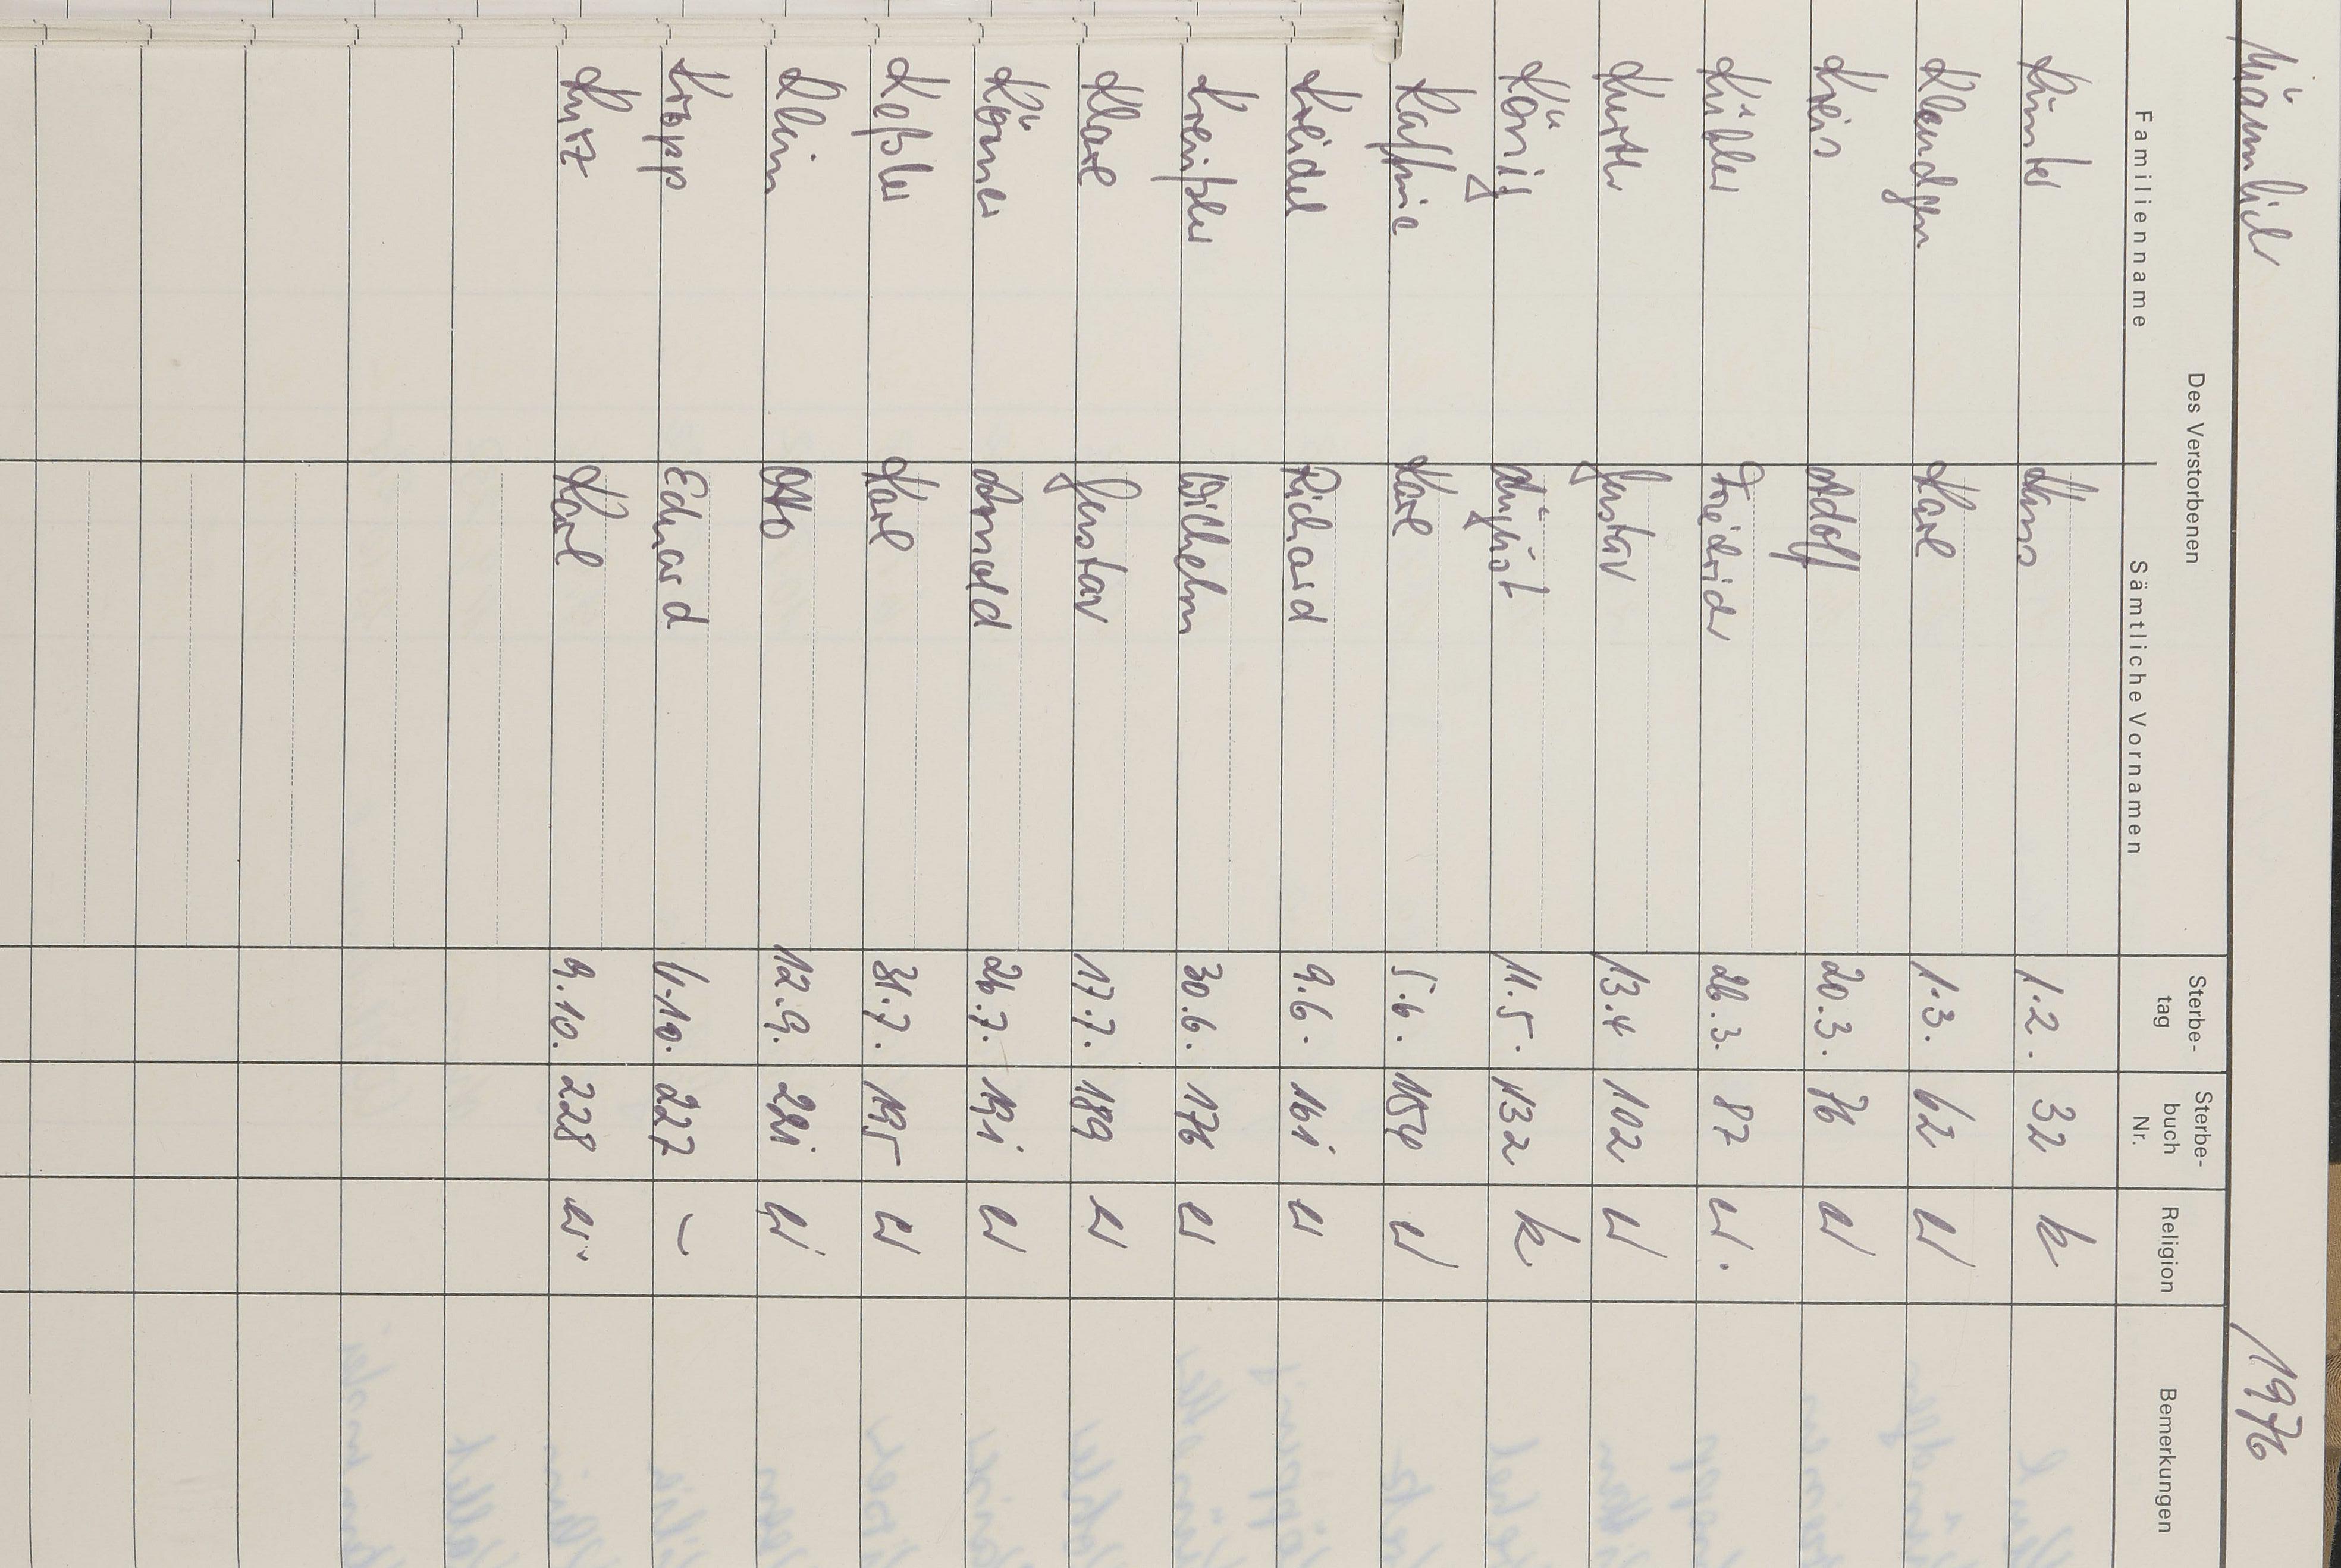 Männlich 1976
Des Verstorbenen
Familienname Sämtliche Vornamen Sterbe-tag Sterbe-buch Nr. Religion Bemerkungen
Künter Hans 1.2. 32 k
Klaudgen Karl 1.3. 62 ev
Kreis Adolf 20.3. 76 ev
Kübler Friedrich 26.3. 87 ev.
Kurth Gustav 13.4 102 ev
König August 11.5. 132 k
Karl 5.6. 154 ev
Kreidel Richard 9.6. 161 ev
Wilhelm 30.6. 176 ev
Karl Gustav 17.7. 189 ev
Körner Arnold 26.7. 191 ev
Keßler Karl 31.7. 195 ev
Klein Otto 12.9. ev
Kropp Eduard 6.10. 227 —
Kurz Karl 9.10. 228 ev.